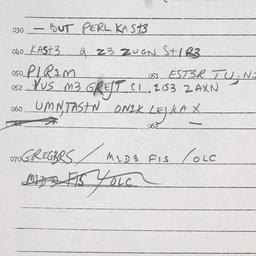 030 — BUT PERL KAST3
040 KAST3 Q Z3 ZUGN ST1R3
050 P1R1M 051 EST3R TU,N
052 VUS M3 GREJT C1 .. 2153 ZAXN
060 UMN,TASTN ON1K LEJKAX
061 062 —
070 GREG3RS / M1D3 F1S / OLC
M1D3 F1S / OLC